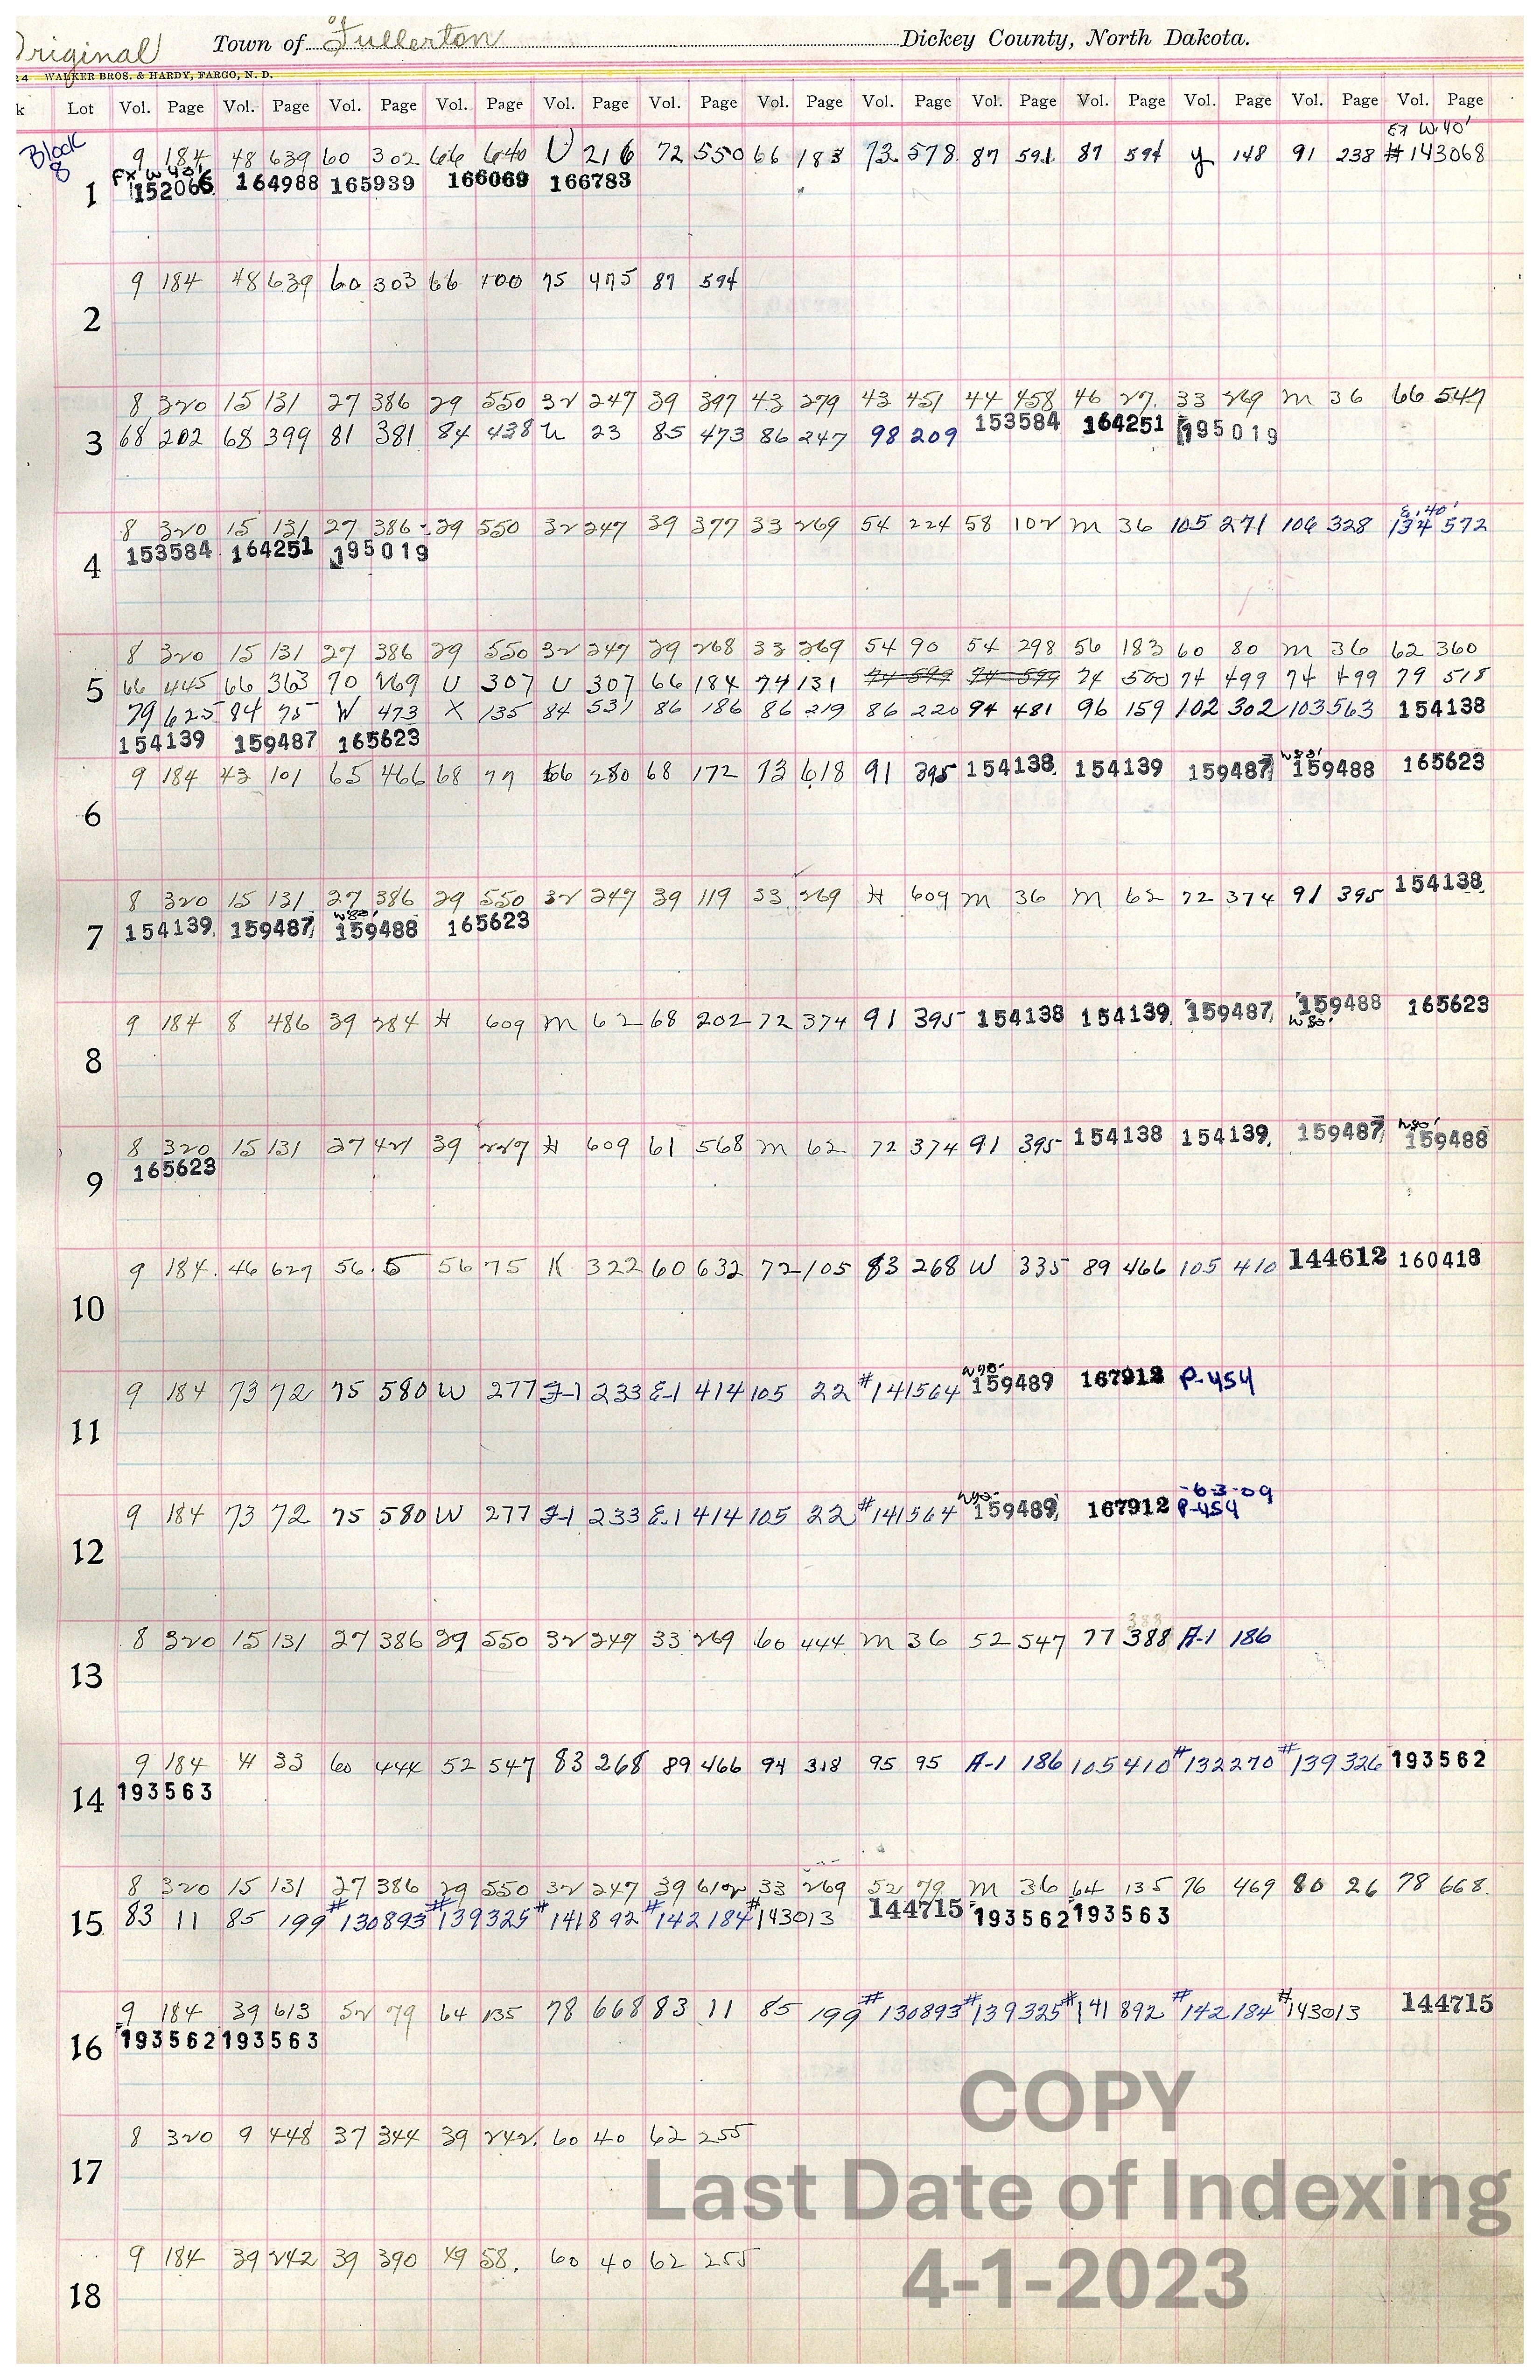 Original Town of Fullerton Dickey County, North Dakota.
24 WALKER BROS. & HARDY, FARGO, N. D.
k Lot Vol. Page Vol. Page Vol. Page Vol. Page Vol. Page Vol. Page Vol. Page Vol. Page Vol. Page Vol. Page Vol. Page Vol. Page Vol. Page
Ex W. 40'
Block 8
9 184 48 639 60 302 66 640 U 216 72 550 66 183 73 578 87 591 87 594 y 148 91 238 #143068
Ex W 40'
1 152066 164988 165939 166069 166783
9 184 48 639 60 303 66 100 75 475 87 594
2
8 320 15 131 27 386 29 550 32 247 39 397 43 279 43 451 44 458 46 27 33 269 M 36 66 547
3 68 202 68 399 81 381 84 438 U 23 85 473 86 247 98 209 153584 164251 195019
E. 40'
8 320 15 131 27 386 29 550 32 247 39 377 33 269 54 224 58 102 M 36 105 271 106 328 134 572
153584 164251 195019
4
8 320 15 131 27 386 29 550 32 247 39 268 33 269 54 90 54 298 56 183 60 80 M 36 62 360
5 66 445 66 363 70 269 U 307 U 307 66 184 74 131 74 599 74 599 74 500 74 499 74 499 79 518
79 625 84 75 W 473 X 135 84 531 86 186 86 219 86 220 94 481 96 159 102 302 103 563 154138
154139 159487 165623
9 184 43 101 65 466 68 77 66 280 68 172 73 618 91 395 154138 154139 159487 159488 165623
6
8 320 15 131 27 386 29 550 32 247 39 119 33 269 H 609 M 36 M 62 72 374 91 395 154138
W80'
7 154139 159487 159488 165623
9 184 8 486 39 284 H 609 M 62 68 202 72 374 91 395 154138 154139 159487 159488 165623
W80'
8
8 320 15 131 27 421 39 227 H 609 61 568 M 62 72 374 91 395 154138 154139 159487 159488
165623
9
9 184 46 627 56 5 56 75 K 322 60 632 72 105 83 268 W 335 89 466 105 410 144612 160418
10
9 184 73 72 75 580 W 277 J-1 233 E-1 414 105 22 #141564 159489 167912 P-454
11
-63-09
9 184 73 72 75 580 W 277 J-1 233 E-1 414 105 22 #141564 159489 167912 P-454
12
388
8 320 15 131 27 386 29 550 32 247 33 269 60 444 M 36 52 547 77 388 A-1 186
13
9 184 H 33 60 444 52 547 83 268 89 466 94 318 95 95 A-1 186 105 410 #132270 #139326 193562
14 193563
8 320 15 131 27 386 29 550 32 247 39 610 33 269 52 79 M 36 64 135 76 469 80 26 78 668
15 83 11 85 199 #130893 #139325 #141892 #142184 #143013 144715 193562 193563
9 184 39 613 52 79 64 135 78 668 83 11 85 199 #130893 #139325 #141892 #142184 #143013 144715
16 193562 193563
8 320 9 448 37 344 39 242 60 40 62 255
17
9 184 39 242 39 390 49 58 60 40 62 255
18
COPY
Last Date of Indexing
4-1-2023